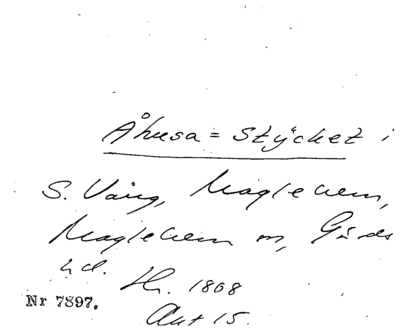 Åhusa=stycket i
S. Vång, Maglehem,
Maglehem sn, Gärds
hd. Hr. 1808
Nr 7897.
Akt 15.